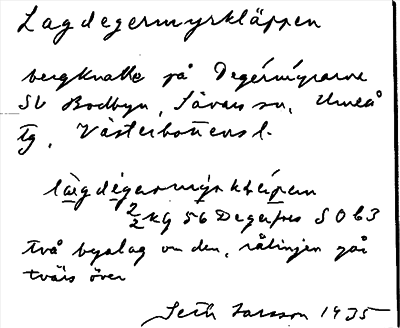 Lagdegermyrkläppen
bergknalle på Degermyrarne
SV Bodbyn, Sävars sn, Umeå
tg, Västerbottens l.
lägdegarmyrkleipen
56 Degerfors S O b3
två byalag om den, rålinjen går
tvärs över
Seth Larsson 1935